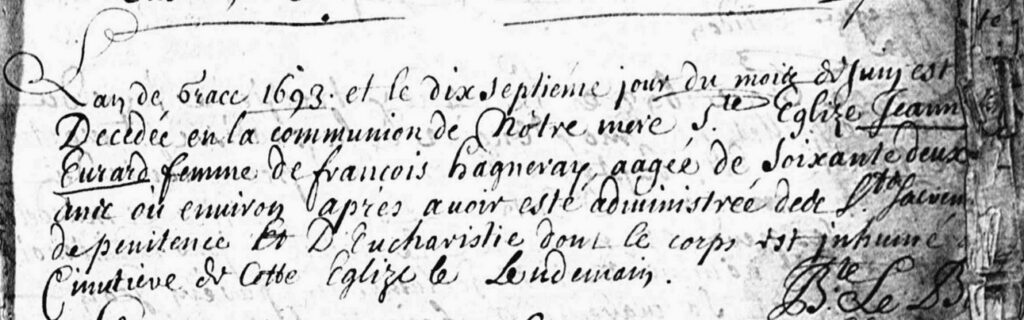 Lan de Grace 1693. et le dixseptieme jour du mois de Juin est
Decedée en la communion de Nôtre mere S.te Eglize Jeann
Eurard femme de francois hagneray, aagée de Soixante deux
ans ou environ apres avoir esté administrée de
de penitence Et D'Eucharistie dont le corps est inhumé
Cimetiere de Cette Eglize le Lendemain.
B.te Le B